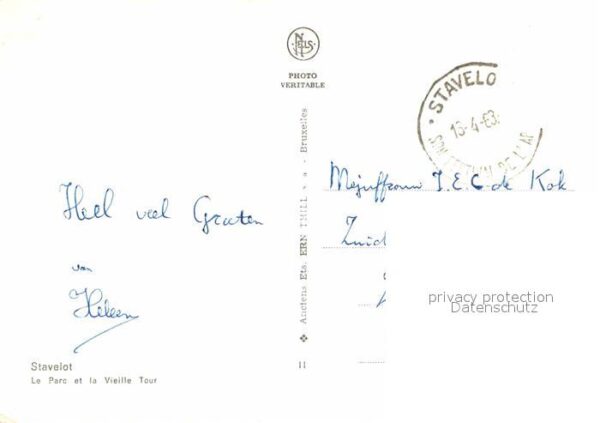 NELS
PHOTO
VERITABLE
STAVELO
16-4-63
Heel veel Groeten
van
Heleen
Anciens Ets. ERN THILL s.a. - Bruxelles
Mejuffrouw J.E.C. de Kok
Zuid
privacy protection
Datenschutz
Stavelot
Le Parc et la Vieille Tour
11